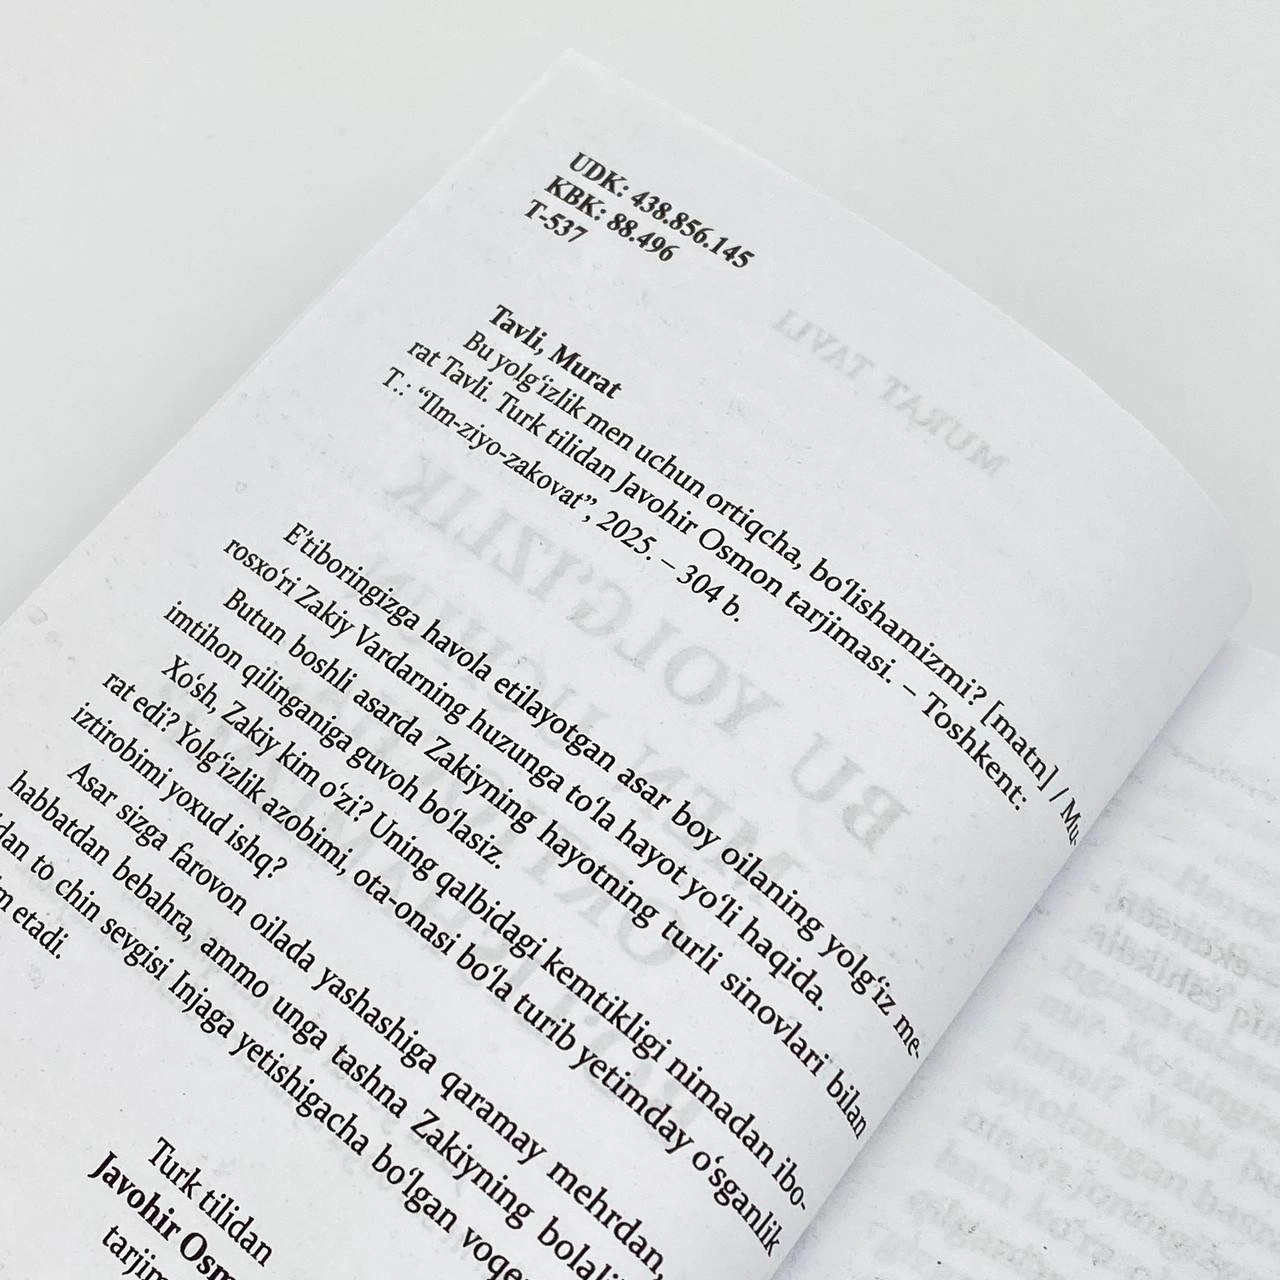 UDK: 438.856.145
KBK: 88.496
T-537
MURAT TAVLI
Tavli, Murat
Bu yolg‘izlik men uchun ortiqcha, bo‘lishamizmi? [matn] / Mu-
rat Tavli. Turk tilidan Javohir Osmon tarjimasi. – Toshkent:
T.: “Ilm-ziyo-zakovat”, 2025. – 304 b.
BU YOLG‘IZLIK
MEN UCHUN
E’tiboringizga havola etilayotgan asar boy oilaning yolg‘iz me-
rosxo‘ri Zakiy Vardarning huzunga to‘la hayot yo‘li haqida.
Butun boshli asarda Zakiyning hayotning turli sinovlari bilan
imtihon qilinganiga guvoh bo‘lasiz.
Xo‘sh, Zakiy kim o‘zi? Uning qalbidagi kemtikligi nimadan ibo-
rat edi? Yolg‘izlik azobimi, ota-onasi bo‘la turib yetimday o‘sganlik
iztirobimi yoxud ishq?
Asar sizga farovon oilada yashashiga qaramay mehrdan,
habbatdan bebahra, ammo unga tashna Zakiyning bolali
dan to chin sevgisi Injaga yetishigacha bo‘lgan voqe
m etadi.
Turk tilidan
Javohir Osm
tarjim